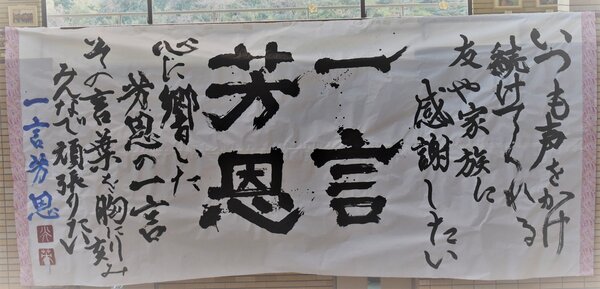 いつも声をかけ
続けてくれる
友や家族に
感謝したい
一言
芳恩
心に響いた
芳恩の一言
その言葉を胸に刻み
みんなで頑張りたい
一言芳恩